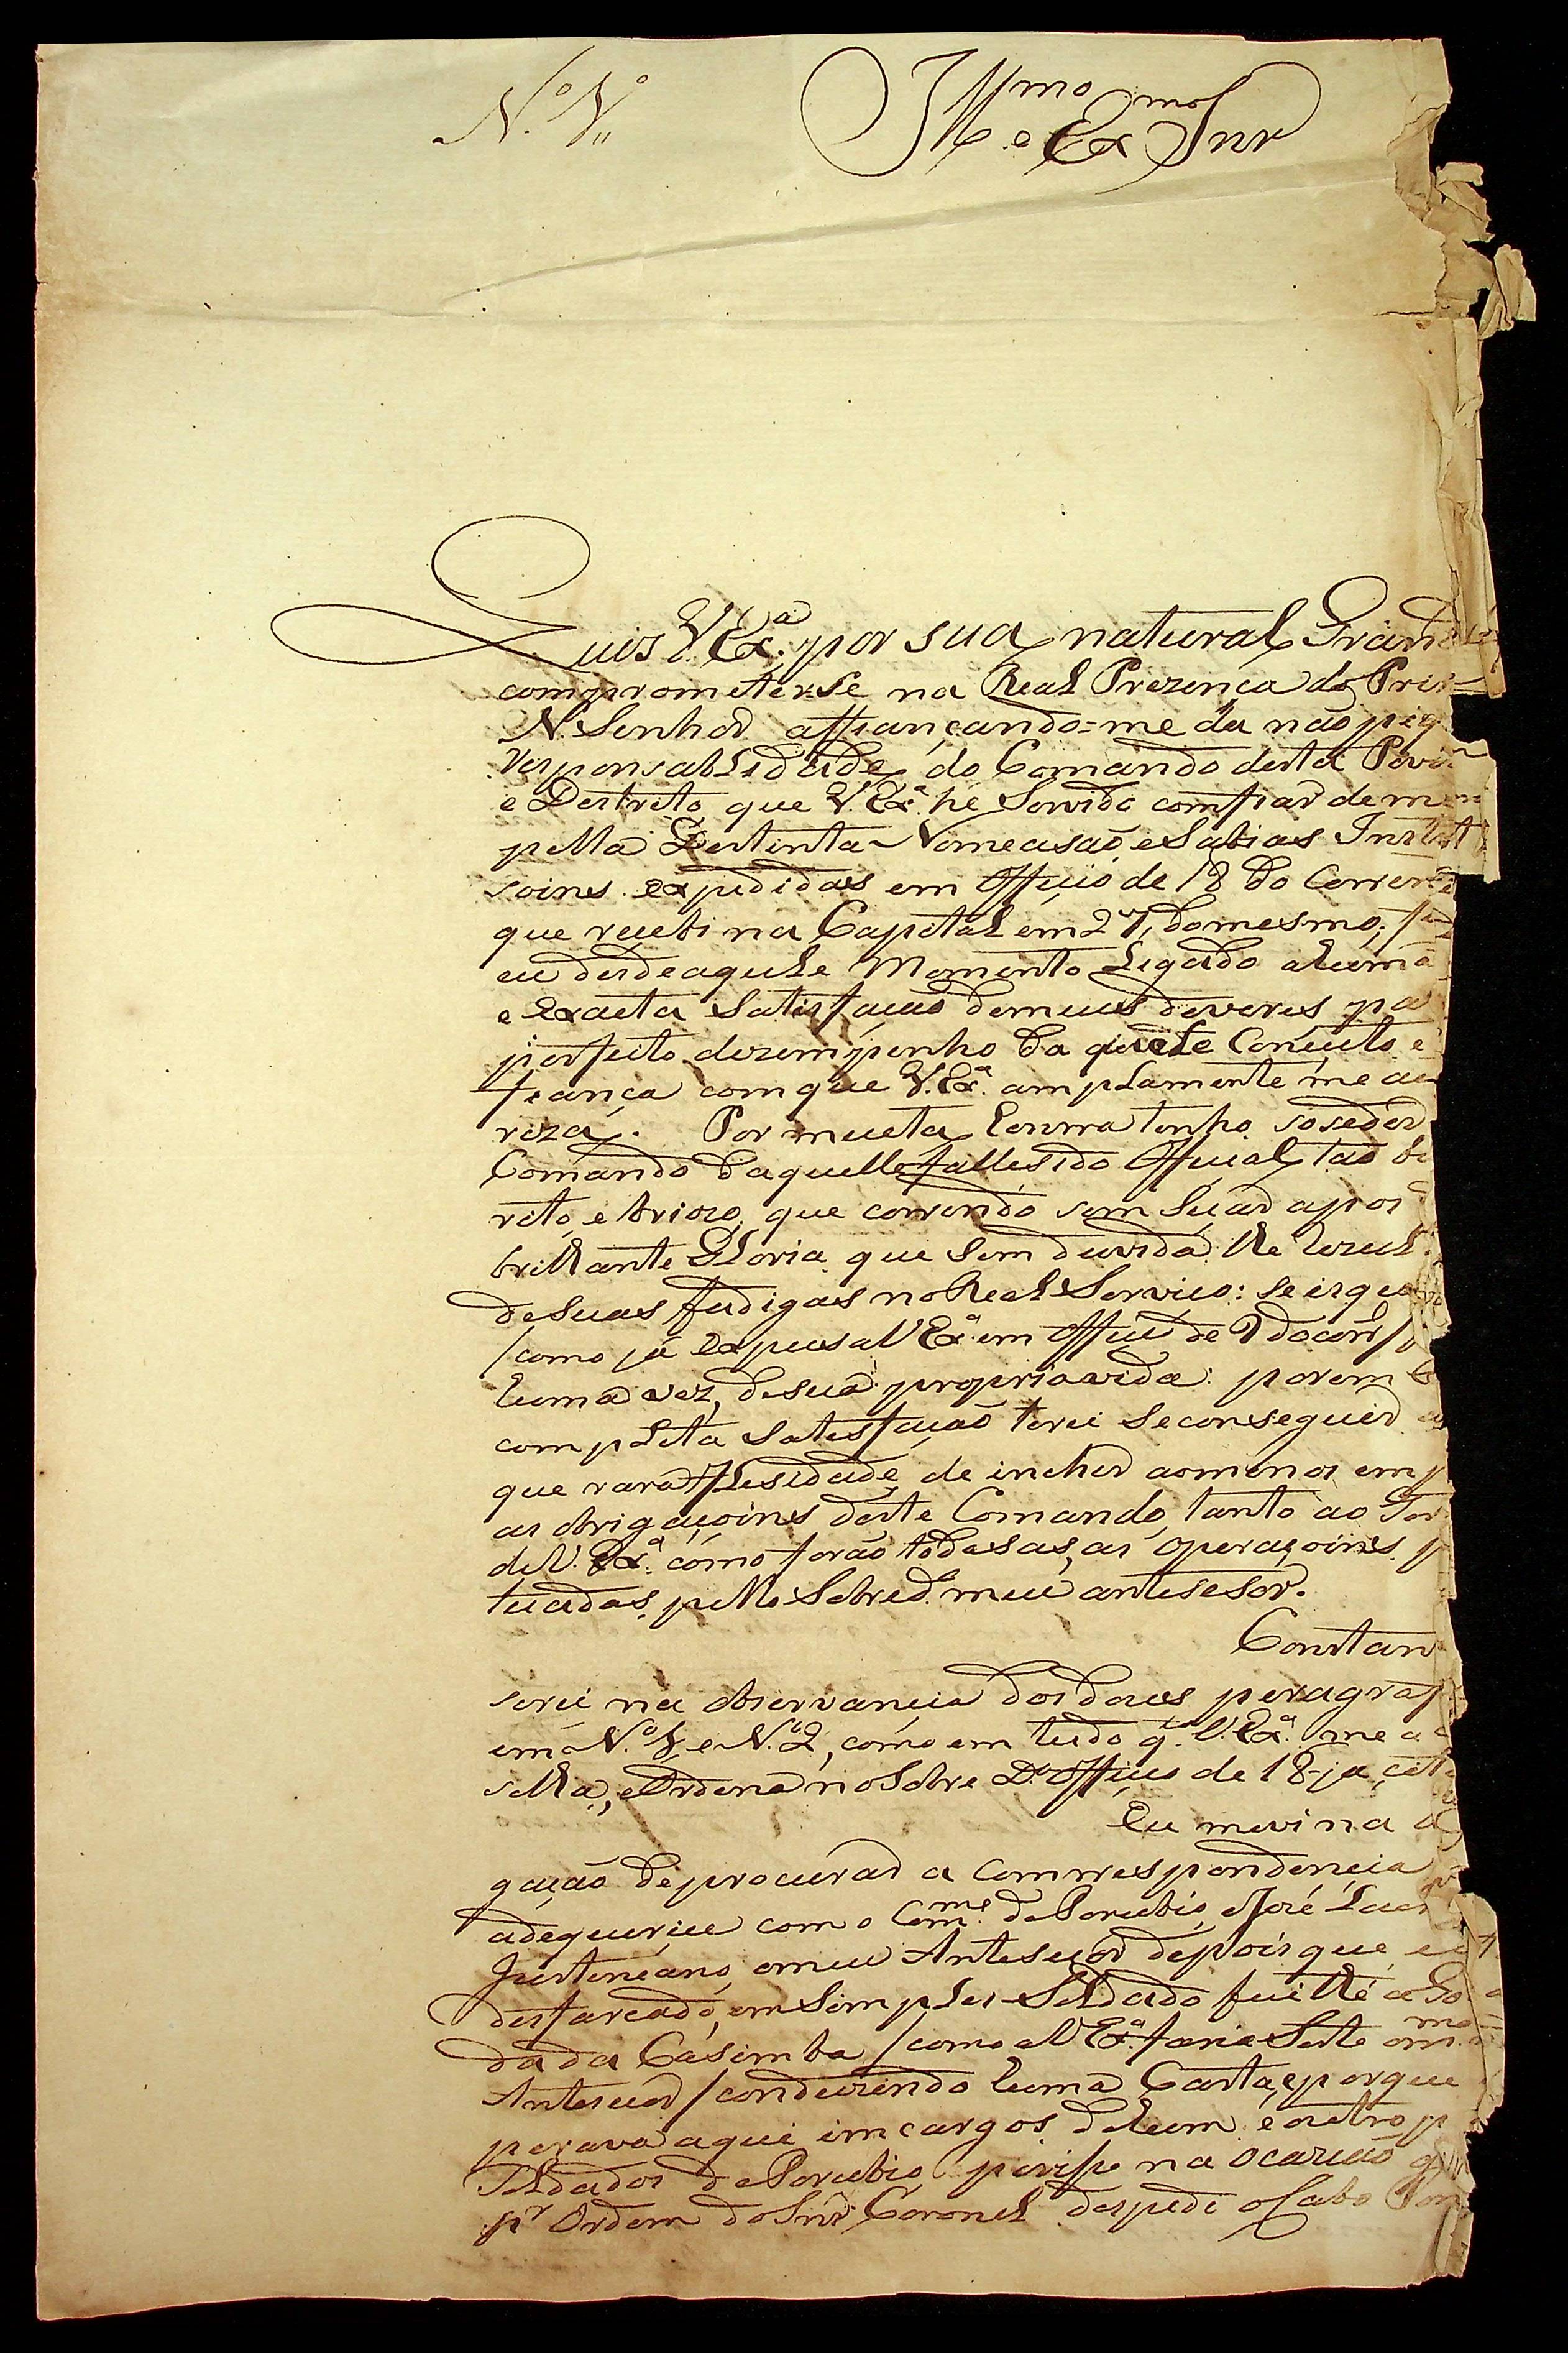 N.º 1.º
Ill.mo e Ex.mo Snr
Quis V. Ex.ª por sua natural Grand
comprometerse na Real Prezença do Prin
N. Senhor affiançando=me da não peq
responsablidade do Comando desta Povo
e Destrito que V. Ex.ª hé Servido comfiar de mim
pella Destinta Nomeasaõ e Sabias Inst
soins expedidas em Officio de 18 do Corrente
que recebi na Capital em 27 do mesmo;
eu desde aquele Momento Ligado a huma
e exacta Satisfacaõ de meus deveres pa
perfeito dezempenho da quele Conceito e
fiança com que V. Ex.ª amplamente me au
riza. Por muita honrra tenho soseder
Comando daquelle fallesido Official taõ
reto, e briozo, que correndo sem Sesar apos
brilhante Gloria que Sem duvida lhe
de Suas fadigas no Real Servico: se
/como já expus a V. Ex.ª em Officio de 9 do corr.
huma vez, de sua propria vida: porem
completa Satesfaçaõ terei Se conseguir
que rara fflesidade, de incher aomenos em p
as obrigaçoins deste Comando, tanto ao
de V. Ex.ª como foraõ todas as, as operaçoins
tuadas, pello Sobred. meu antesesor.
Constan
serei na observancia dos dous peragraf
em N.º 1, e N.º 2, como em tudo q. V. Ex.ª me a
selha, e Ordena no Sobre D.º Officio de 18 já cit
Eu me vi na
gaçaõ de procurar a Comrrespondencia
adequerice com o Com.me de Borubio José
Justeneano, o meu Antesesor depois que eu
desfarcado, em Simples Soldado fui lhe
da da Casimba /como a V. Ex.ª faria Serte
Antesesor/ conduzindo huma Carta, e porque
perava aqui imcargos de hum e outro p
Soldados de Borubio, porisso na ocaziaõ
p.r Ordem do Snr Coronel despedi o Cabo